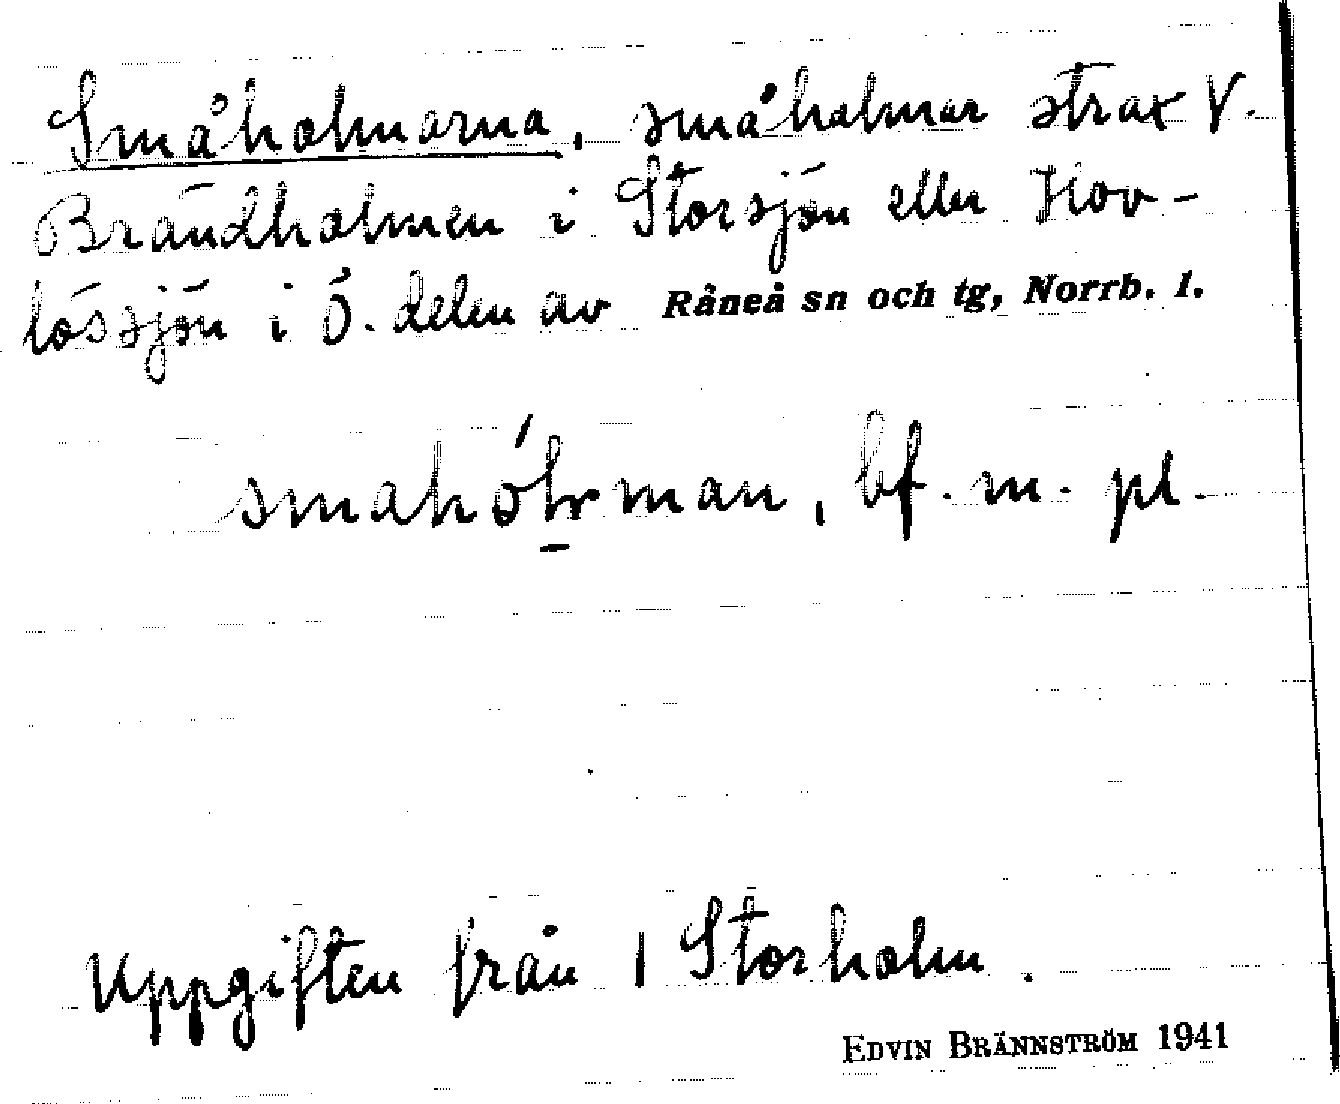 Småholmarna, småholmar strax V.
Brändholmen i Storsjön eller Hov-
lössjön i Ö. delen av Råneå sn och tg, Norrb. l.
bf. m. pl.
Uppgiften från 1 Storholm.
EDVIN BRÄNNSTRÖM 1941